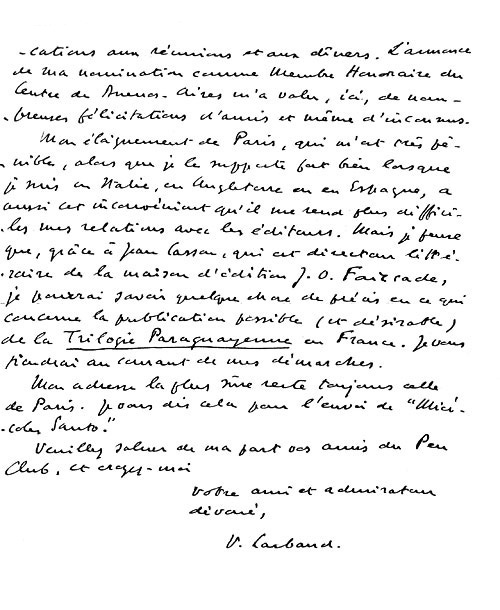 -cations aux réunions et aux dîners. L'annonce
de ma nomination comme Membre Honoraire du
Centre de Buenos-Aires m'a valu, ici, de nom-
-breuses félicitations d'amis et même d'inconnus.
Mon éloignement de Paris, qui m'est très pé-
-nible, alors que je le supporte fort bien lorsque
je suis en Italie, en Angleterre ou en Espagne, a
aussi cet inconvénient qu'il me rend plus diffici-
-les mes relations avec les éditeurs. Mais je pense
que, grâce à Jean Cassou, qui est directeur litté-
-raire de la maison d'édition J. O. Fourcade,
je pourrai savoir quelque chose de précis en ce qui
concerne la publication possible (et désirable)
de la Trilogie Paraguayenne en France. Je vous
tiendrai au courant de mes démarches.
Mon adresse la plus sûre reste toujours celle
de Paris. Je vous dis cela pour l'envoi de "Miér-
-coles Santo."
Veuillez saluer de ma part vos amis du Pen
Club, et croyez-moi
votre ami et admirateur
dévoué,
V. Larbaud.